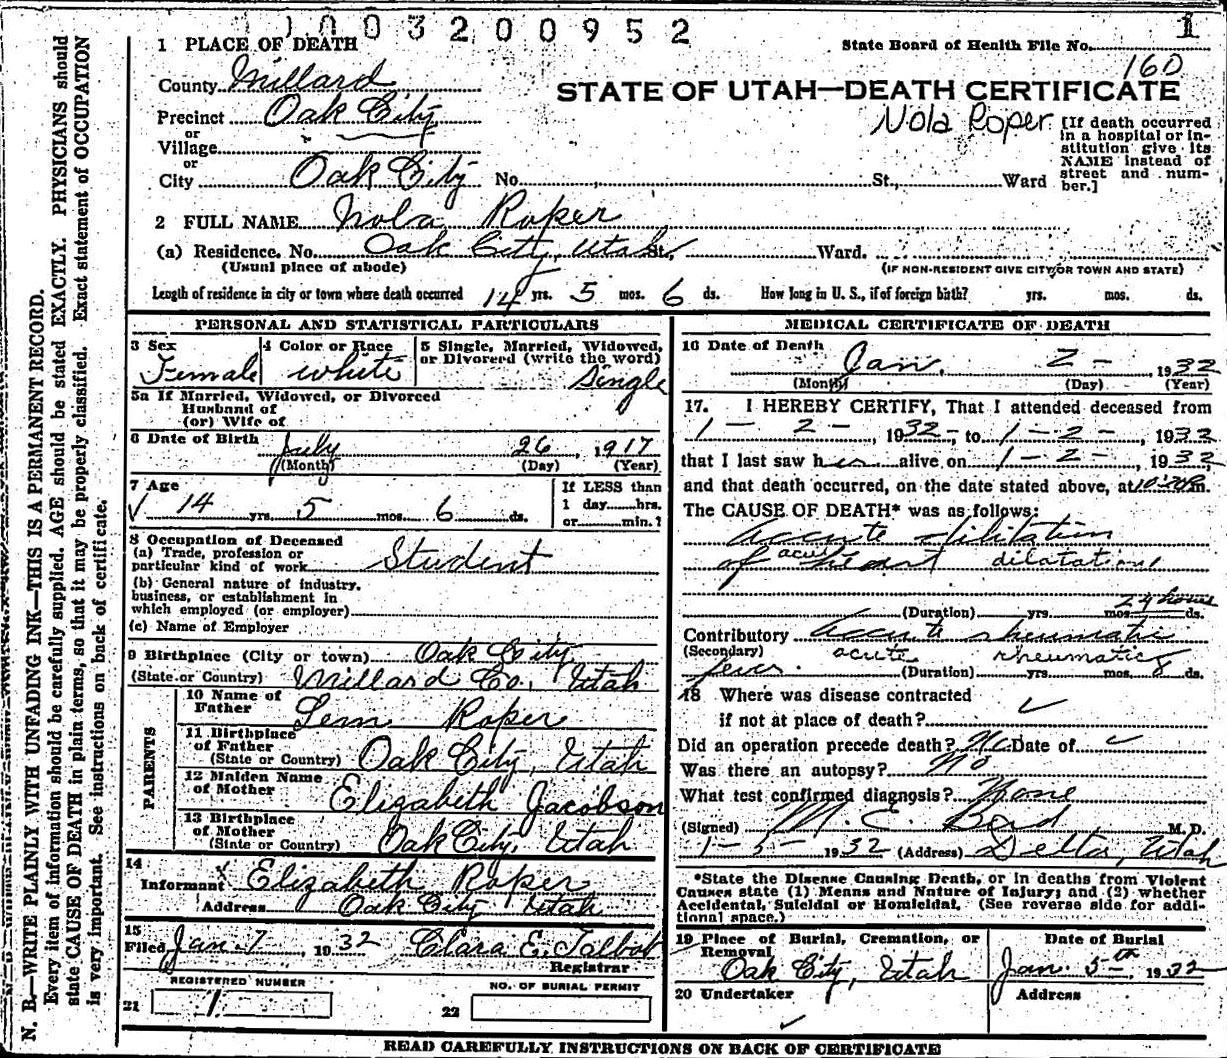 1003200952
1
1 PLACE OF DEATH
State Board of Health File No.
160
County Millard
STATE OF UTAH—DEATH CERTIFICATE
Precinct Oak City
Nola Roper
[If death occurred in a hospital or institution give its NAME instead of street and number.]
or
Village
or
City Oak City No. St., Ward
2 FULL NAME Nola Roper
(a) Residence. No. Oak City, Utah St. Ward.
(Usual place of abode) (IF NON-RESIDENT GIVE CITY OR TOWN AND STATE)
Length of residence in city or town where death occurred 14 yrs. 5 mos. 6 ds. How long in U. S., if of foreign birth? yrs. mos. ds.
PERSONAL AND STATISTICAL PARTICULARS
3 Sex 4 Color or Race 5 Single, Married, Widowed,
or Divorced (write the word)
Female white Single
5a If Married, Widowed, or Divorced
Husband of
(or) Wife of
6 Date of Birth July 26, 1917
(Month) (Day) (Year)
7 Age
14 yrs. 5 mos. 6 ds.
If LESS than
1 day hrs.
or min.?
8 Occupation of Deceased
(a) Trade, profession or
particular kind of work Student
(b) General nature of industry,
business, or establishment in
which employed (or employer)
(c) Name of Employer
9 Birthplace (City or town) Oak City
(State or Country) Millard Co., Utah
PARENTS
10 Name of
Father Lem Roper
11 Birthplace
of Father
(State or Country) Oak City, Utah
12 Maiden Name
of Mother Elizabeth Jacobson
13 Birthplace
of Mother
(State or Country) Oak City, Utah
14
Informant Elizabeth Roper
Address Oak City Utah
15
Filed Jan. 7 1932 Clara E. Talbot
Registrar
REGISTERED NUMBER
21 1
NO. OF BURIAL PERMIT
22
MEDICAL CERTIFICATE OF DEATH
16 Date of Death
Jan. 2 - , 1932
(Month) (Day) (Year)
17. I HEREBY CERTIFY, That I attended deceased from
1 - 2 - , 1932, to 1 - 2 - , 1932
that I last saw her alive on 1 - 2 - , 1932
and that death occurred, on the date stated above, at m.
The CAUSE OF DEATH* was as follows:
Accute dilitation
of heart
acute dilatation
24 hours
(Duration) yrs. mos. ds.
Contributory Accute rheumatic
(Secondary) acute rheumatic
fever. (Duration) yrs. mos. 8 ds.
18 Where was disease contracted
if not at place of death?
Did an operation precede death? No Date of
Was there an autopsy? No
What test confirmed diagnosis? None
(Signed) M. E. Bird M. D.
1 - 5 - 1932 (Address) Delta, Utah
*State the Disease Causing Death, or in deaths from Violent
Causes state (1) Means and Nature of Injury; and (2) whether
Accidental, Suicidal or Homicidal. (See reverse side for addi-
tional space.)
19 Place of Burial, Cremation, or
Removal
Oak City, Utah
Date of Burial
Jan. 5th, 1932
20 Undertaker
Address
READ CAREFULLY INSTRUCTIONS ON BACK OF CERTIFICATE
N. B.—WRITE PLAINLY WITH UNFADING INK—THIS IS A PERMANENT RECORD.
Every item of information should be carefully supplied. AGE should be stated EXACTLY. PHYSICIANS should
state CAUSE OF DEATH in plain terms, so that it may be properly classified. Exact statement of OCCUPATION
is very important. See instructions on back of certificate.